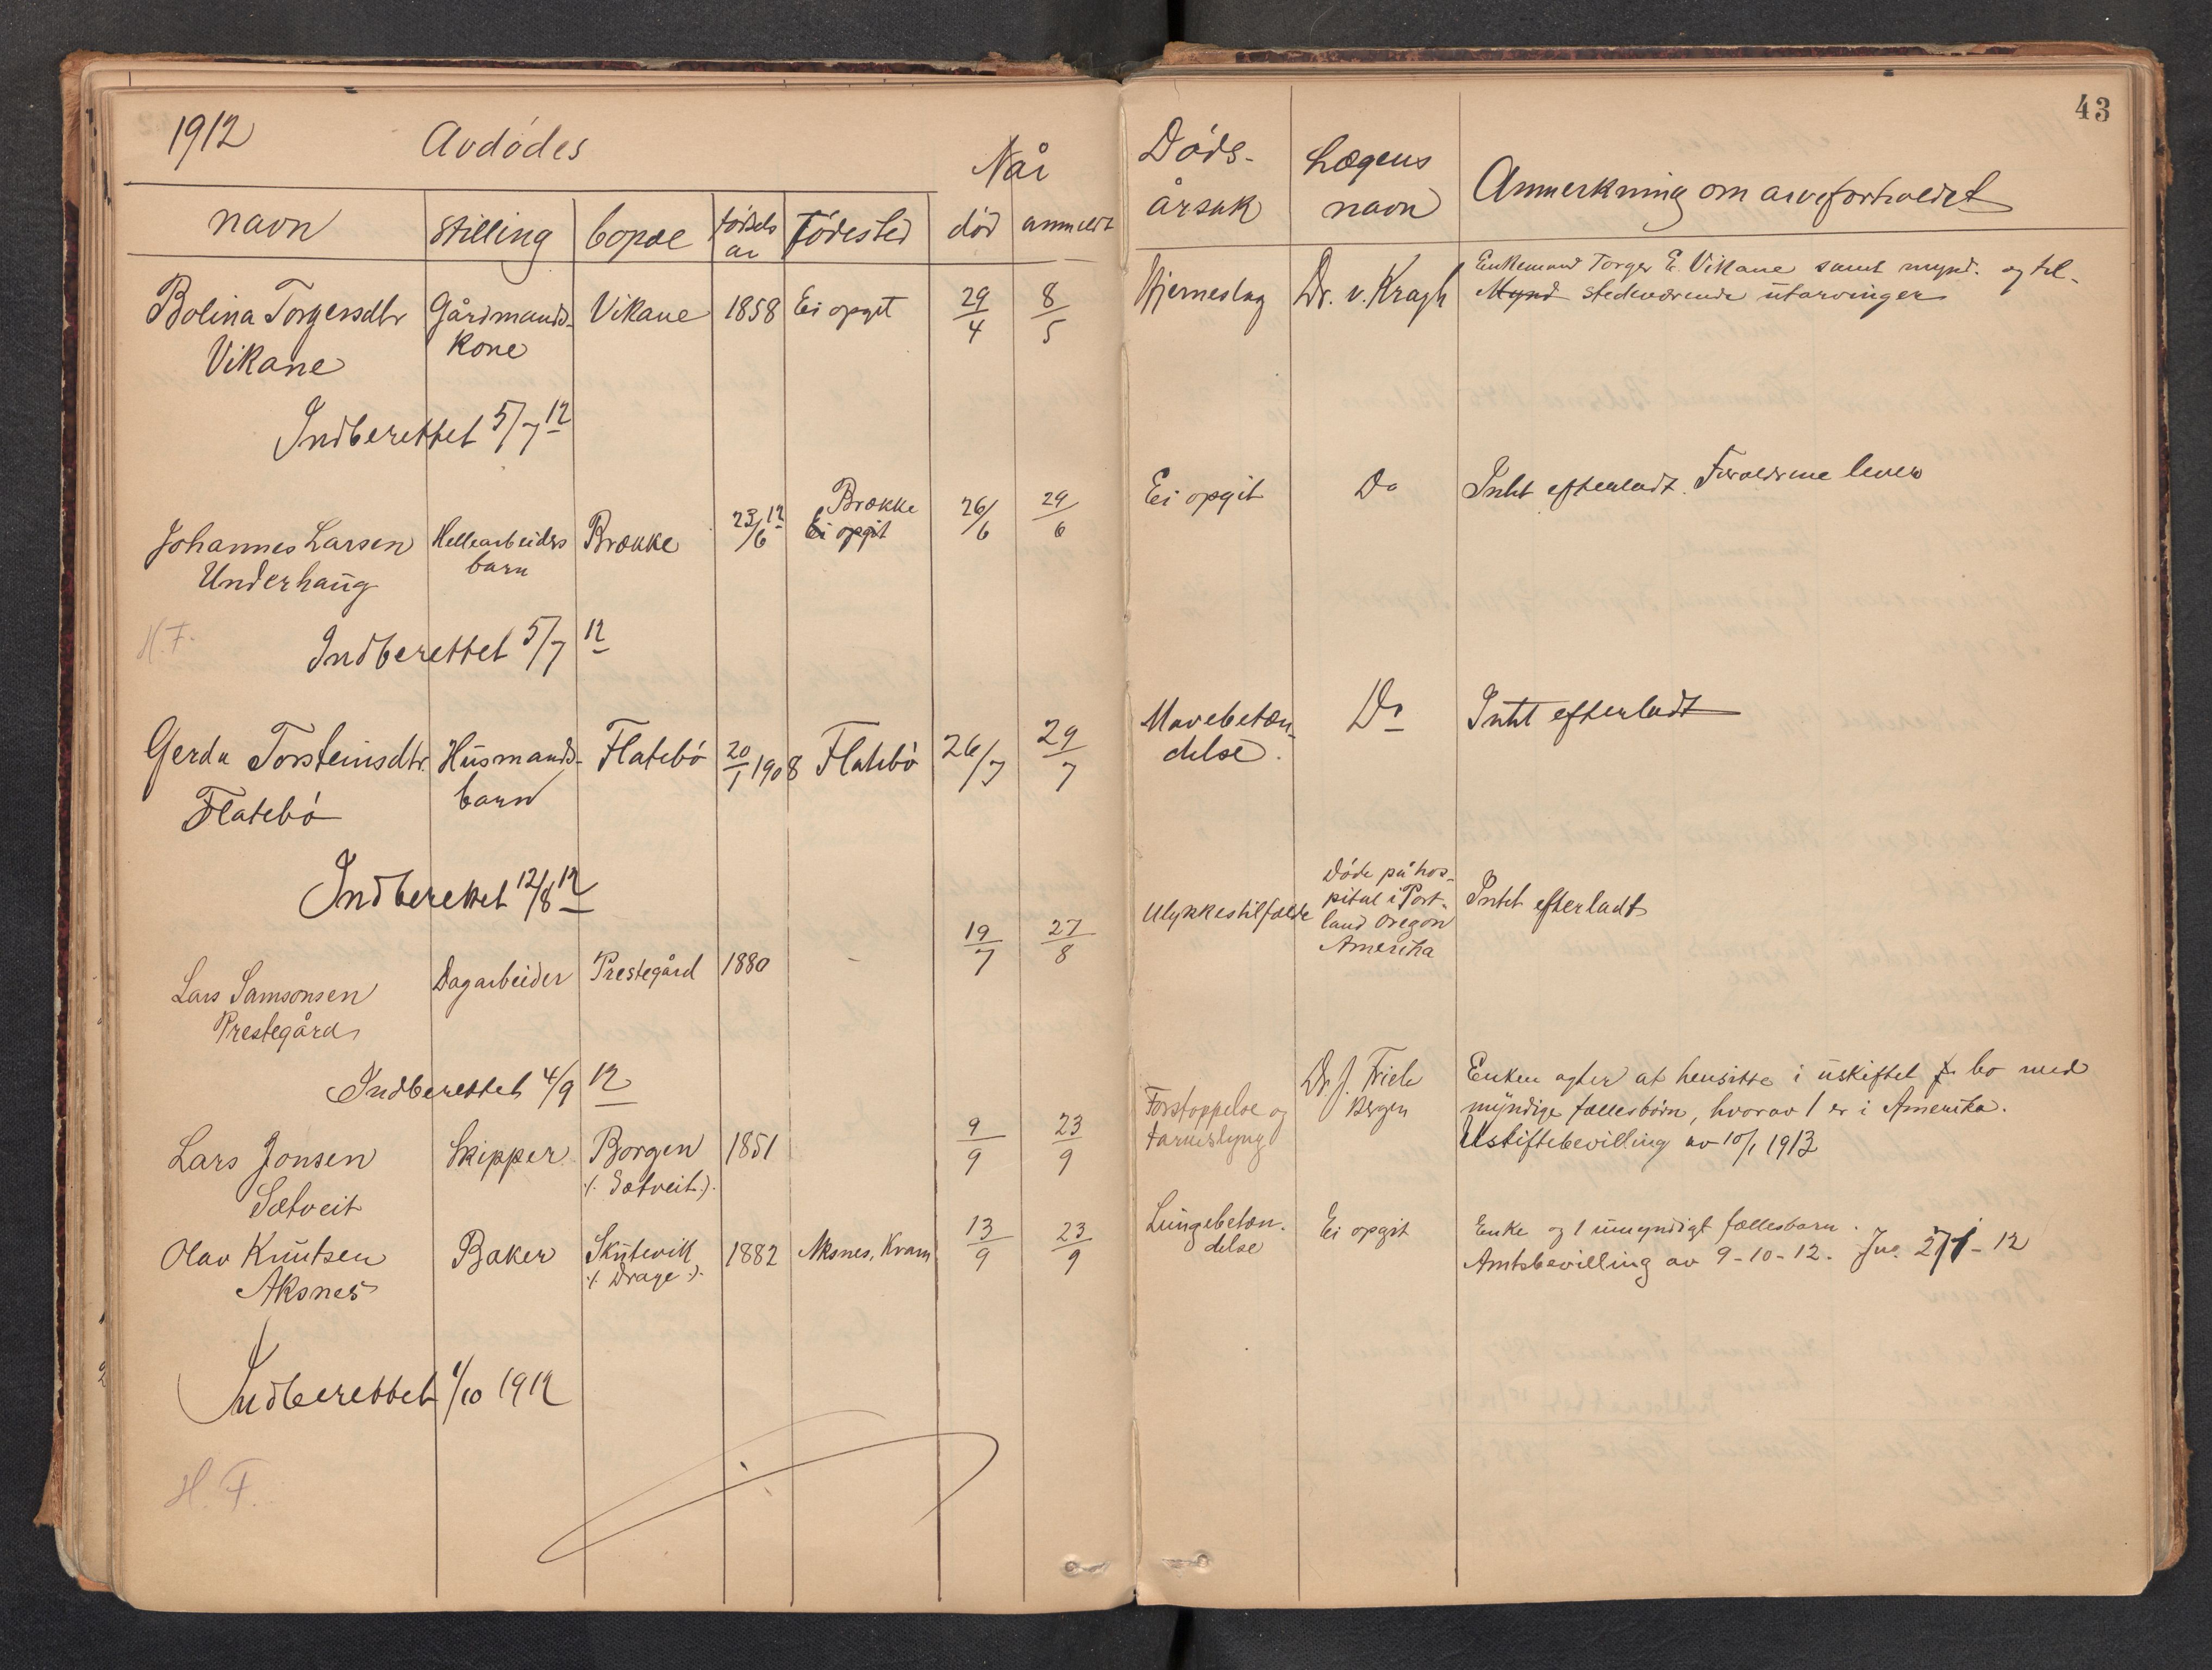 43
1912 Avdødes Når Døds- Lægens
årsak navn Anmerkning om arveforholdet
navn stilling bopæl fødsels år Fødested død anmeldt
Bolina Torgersdtr Gårdmands- Vikane 1858 Ei opgit 29/4 8/5 Hjerneslag Dr. v. Kragh Enkemand Torger E. Vikane samt mynd. og til-
Vikane kone Mynd stedeværende utarvinger
Indberettet 5/7 12
Johannes Larsen Hellearbeiders Brække 23/6 12 Brække 26/6 29/6 Ei opgit Do Intet efterladt. Forældrene lever
Underhaug barn Ei opgit
H. F.
Indberettet 5/7 12
Gerda Torsteinsdtr. Husmands- Flatebø 20/1 1908 Flatebø 26/7 29/7 Mavebetæn- Do Intet efterladt
Flatebø barn delse.
Indberettet 12/8 12
Lars Samsonsen Dagarbeider Prestegård 1880 - 19/7 27/8 Ulykkestilfælde Døde på hos- Intet efterladt
Prestegård pital i Port-
land Oregon
Amerika
Indberettet 4/9 12
Lars Jonsen Skipper Borgen 1851 9/9 23/9 Forstoppelse og Dr. J. Friele Enken agter at hensitte i uskiftet bo med
Sætveit /. Sætveit ./. tarmslyng Bergen myndige fællesbørn, hvorav 1 er i Amerika.
Uskiftebevilling av 10/1 1913
Olav Knutsen Baker Skutevik 1882 Aksnes, Kvam 13/9 23/9 Lungebetæn- Ei opgit Enke og 1 umyndigt fællesbarn.
Aksnes /. Drage ./. delse Amtsbevilling av 9-10-12. Jno. 271-12
Indberettet 1/10 1912
H. F.